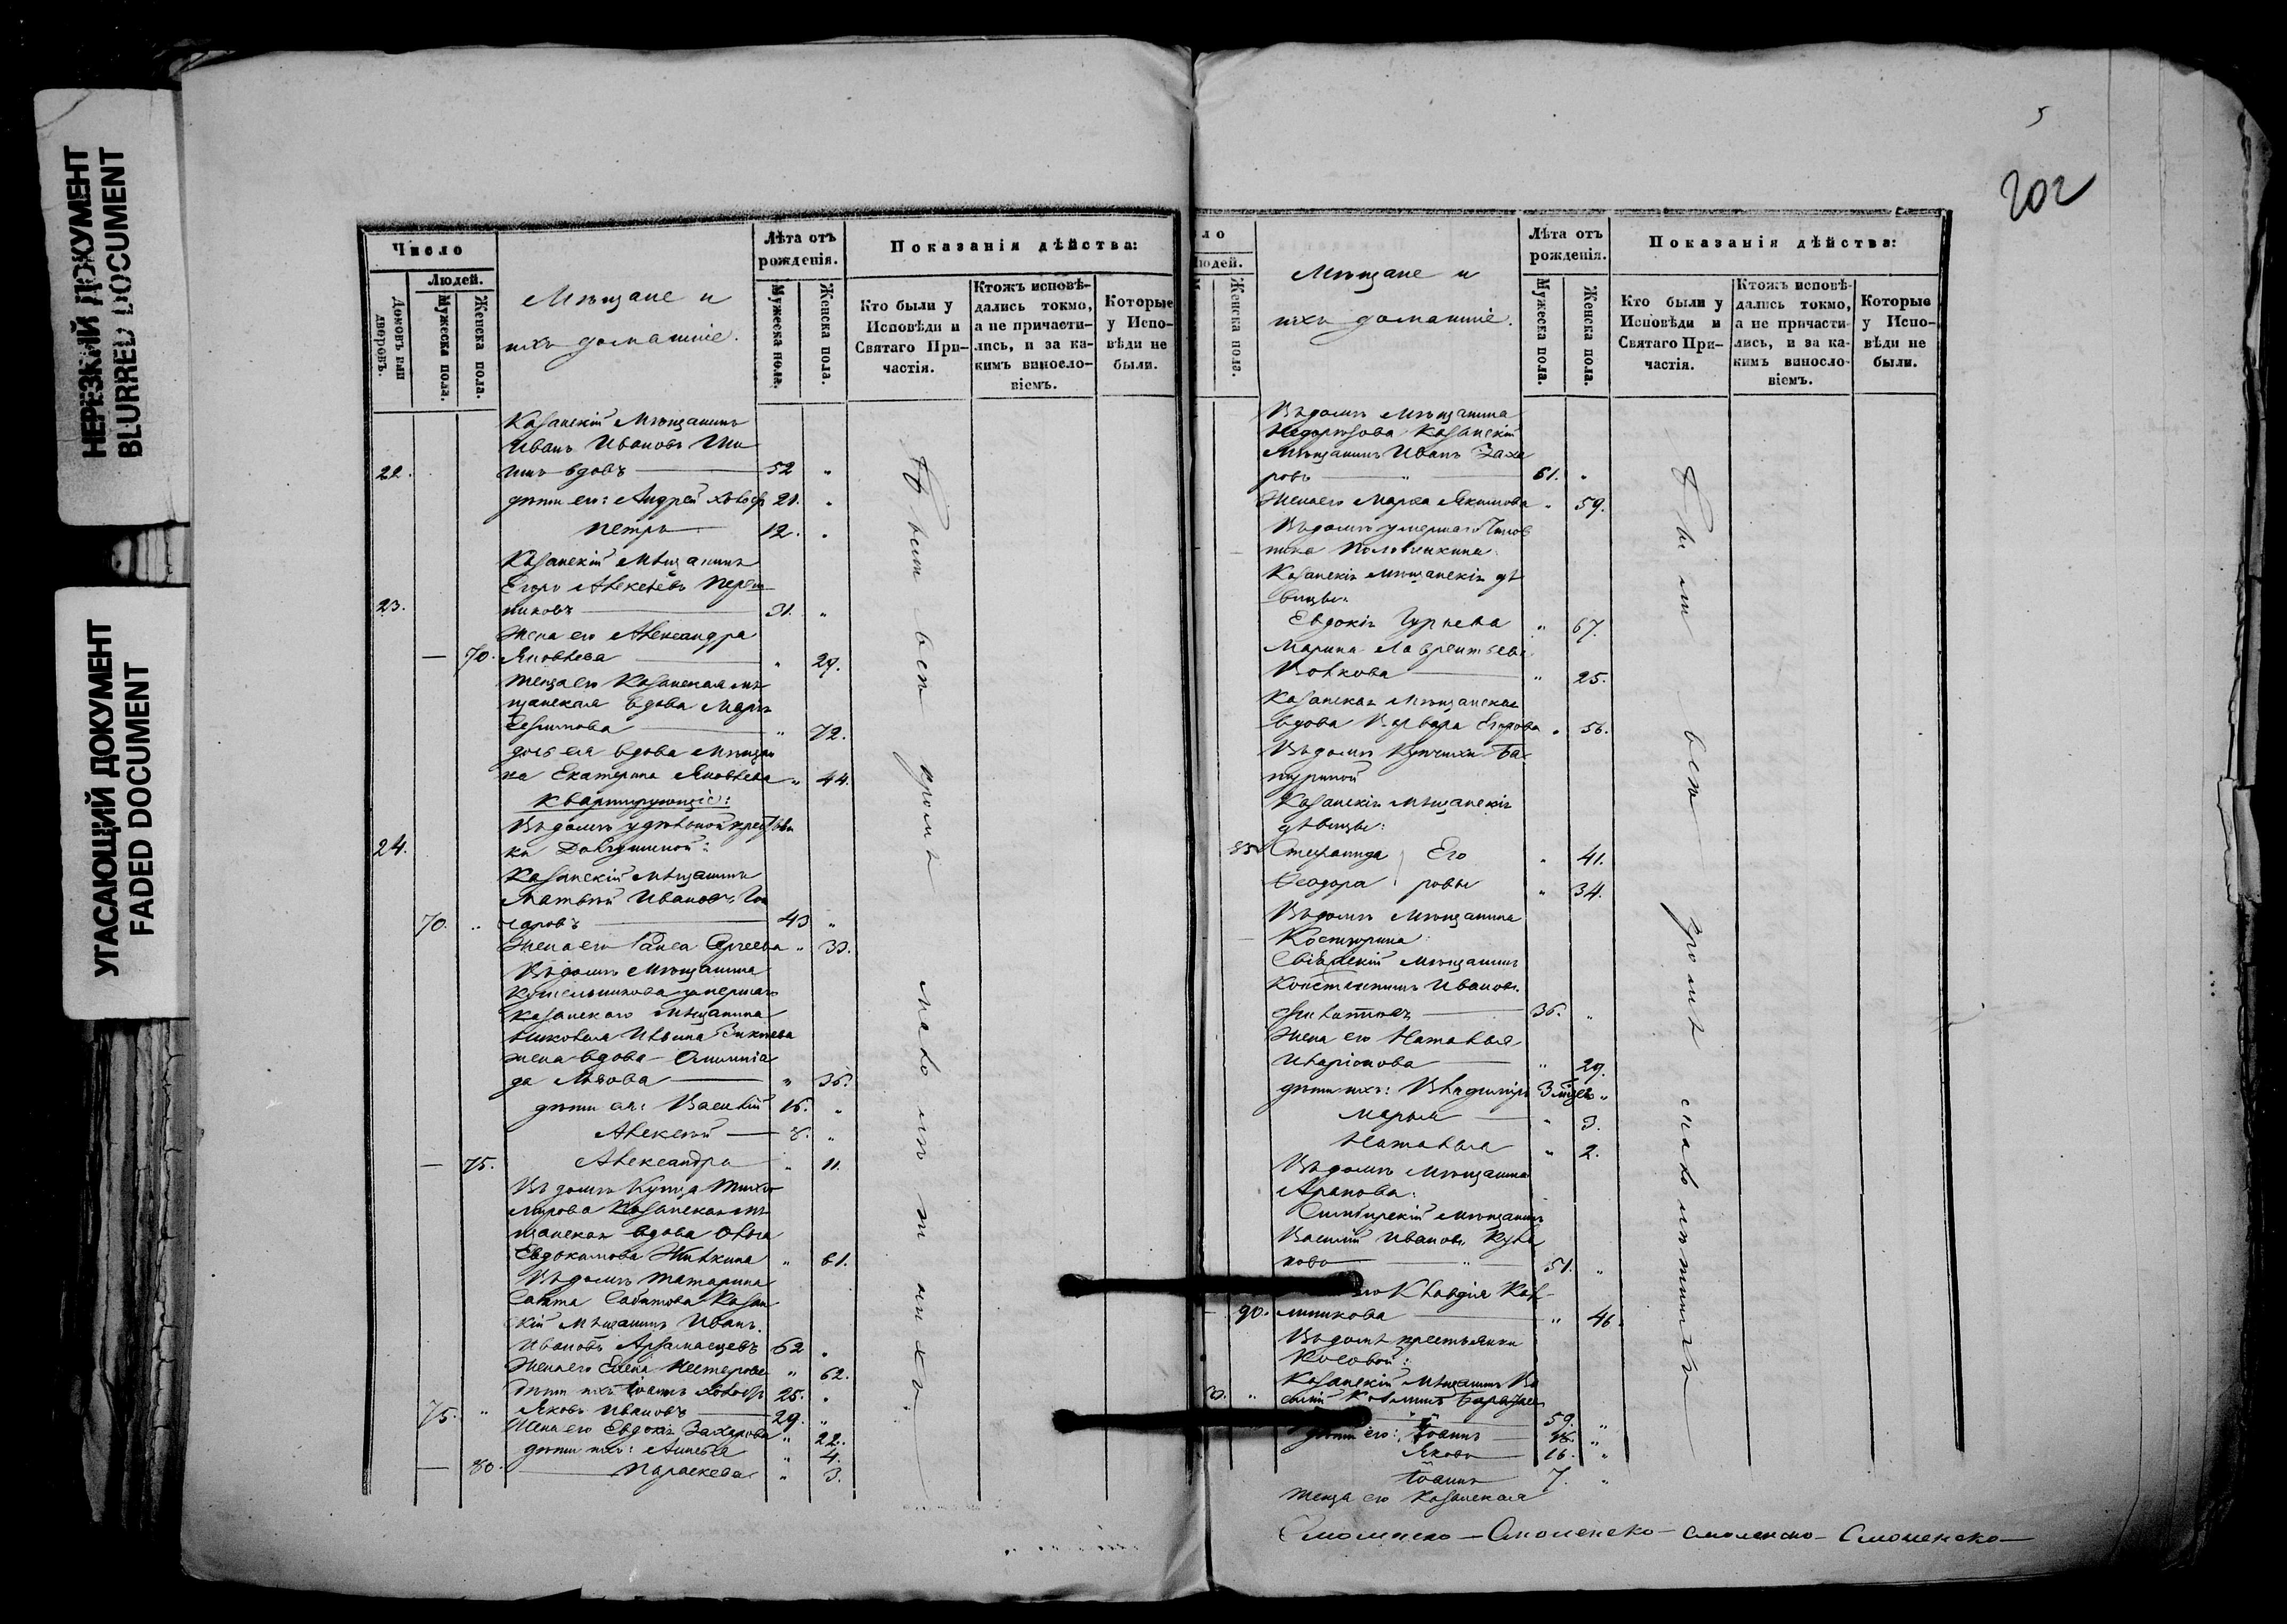 НЕРЕЗКИЙ ДОКУМЕНТ
BLURRED DOCUMENT
УГАСАЮЩИЙ ДОКУМЕНТ
FADED DOCUMENT
Число
Людей.
Домовъ или дворовъ.
Мужеска пола.
Женска пола.
Мѣщане и
ихъ домашніе.
Лѣта отъ рожденія.
Мужеска пола.
Женска пола.
Показанія дѣйства:
Кто были у Исповѣди и Святаго Причастія.
Ктожъ исповѣдались токмо, а не причастились, и за какимъ винословіемъ.
Которые у Исповѣди не были.
Казанскій Мѣщанинъ
Иванъ Ивановъ
22. вдовъ 52 "
дѣти его: Андрей холос 21. "
Петръ 12. "
Казанскій Мѣщанинъ
Егоръ Алексѣевъ
23. 31. "
Жена его Александра
— 70. Яковлева " 29.
теща его Казанская мѣ
щанская вдова Марія
" 72.
дочь ея вдова Мѣщан
ка Екатерина Яковлева " 44.
Квартирующіе:
Въ домѣ удѣльной крестьян
24. ки
Казанскій Мѣщанинъ
Матвѣй Ивановъ Гон
70. " чаровъ 43 "
Жена его Раиса Сергеева " 33.
Въ домѣ Мѣщанина
Котельникова умершаго
Казанскаго Мѣщанина
Николая Ильина
жена вдова Олимпіа
да Львова " 36.
дѣти ея: Василій 16. "
Алексѣй 8. "
— 75. Александра " 11.
Въ домѣ Купца Тихо
мірова Казанская мѣ
щанская вдова Ольга
Евдокимова Жилкина " 61.
Въ домѣ татарина
Сабитова Казан
скій Мѣщанинъ Иванъ
Ивановъ Арзамасцевъ 62 "
Жена его Елена Нестерова " 62.
Дѣти ихъ: Іоаннъ холос 25. "
75. " Яковъ Ивановъ 29. "
Жена его Евдокія Захарова " 22.
дѣти ихъ: " 4.
— 80. Параскева " 3.
Были всѣ кромѣ малолѣтнихъ
5
202
ло
Людей.
Женска пола.
Мѣщане и
ихъ домашніе.
Лѣта отъ рожденія.
Мужеска пола.
Женска пола.
Показанія дѣйства:
Кто были у Исповѣди и Святаго Причастія.
Ктожъ исповѣдались токмо, а не причастились, и за какимъ винословіемъ.
Которые у Исповѣди не были.
Въ домѣ Мѣщанина
Казанскій
Мѣщанинъ Иванъ Заха
ровъ 61. "
Жена его Марѳа Якимова " 59.
Въ домѣ умершаго Чинов
ника Половинкина:
Казанскія мѣщанскія дѣ
вицы:
Евдокія Гурьева " 67.
Марина Лаврентьева
Волкова " 25.
Казанская Мѣщанская
вдова Варвара Егорова " 56.
Въ домѣ Купчихи Ба
туриной
Казанскія Мѣщанскія
дѣвицы:
85 Стефанида Его " 41.
Ѳеодора ровы " 34.
Въ домѣ Мѣщанина
Костюрина
Свіяжскій Мѣщанинъ
Константинъ Ивановъ
Филатовъ 36. "
Жена его Наталья
Иларіонова " 29.
дѣти ихъ: Владиміръ 3 мѣся "
Марья " 3.
Наталья " 2.
Въ домѣ Мѣщанина
Арапова:
Симбирскій мѣщанинъ
Василій Ивановъ
51. "
Клавдія Кал
— 90. " 46.
Въ домѣ крестьянки
Косовой:
Казанскій Мѣщанинъ Ва
силій
59. "
дѣти его: Іоаннъ 18. "
Яковъ 16. "
Іоаннъ 7. "
теща его Казанская
Были всѣ кромѣ малолѣтнихъ
Смоленско — Смоленско — Смоленско — Смоленско —